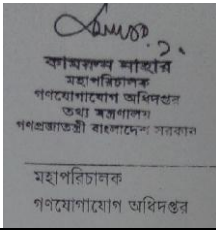 কামরুন নাহার
মহাপরিচালক
গণযোগাযোগ অধিদপ্তর
তথ্য মন্ত্রণালয়
গণপ্রজাতন্ত্রী বাংলাদেশ সরকার
মহাপরিচালক
গণযোগাযোগ অধিদপ্তর